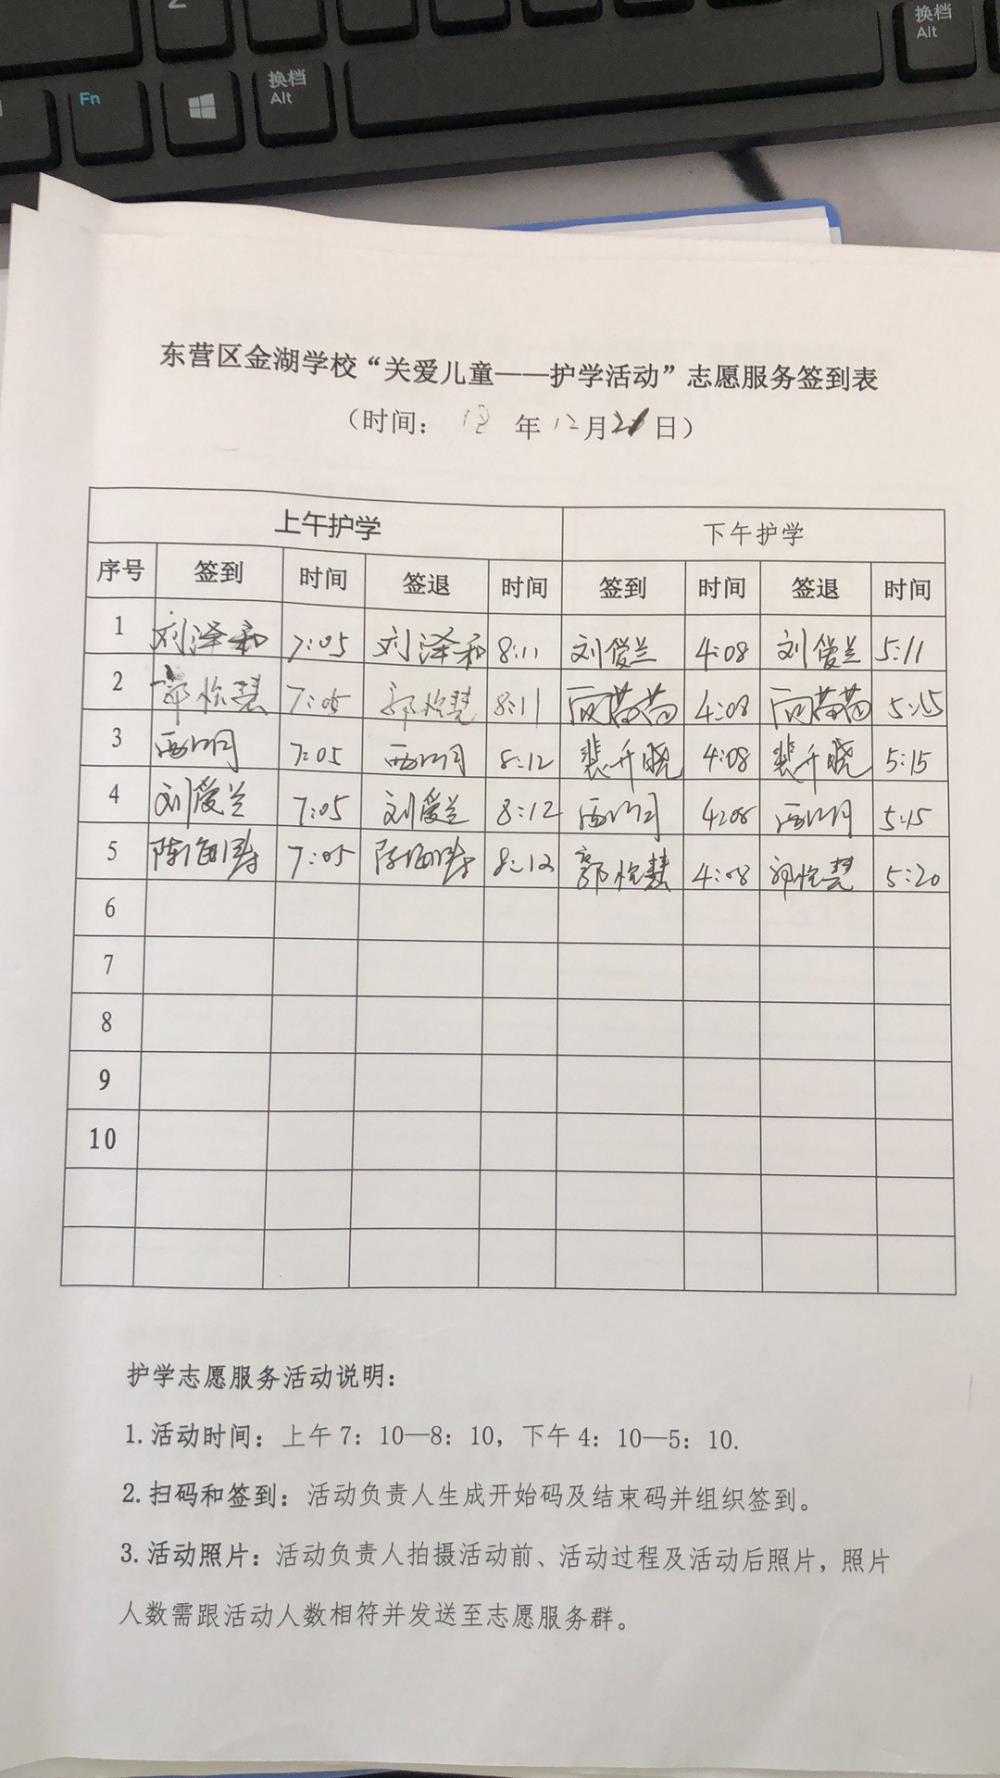 换档
Alt
Fn
换档
Alt
东营区金湖学校“关爱儿童——护学活动”志愿服务签到表
（时间： 年 12月 日）
上午护学 下午护学
序号 签到 时间 签退 时间 签到 时间 签退 时间
1 刘泽和 7:05 刘泽和 8:11 刘爱兰 4:08 刘爱兰 5:11
2 7:05 8:11 4:08 5:15
3 7:05 8:12 4:08 5:15
4 刘爱兰 7:05 刘爱兰 8:12 4:08 5:15
5 7:05 8:12 4:08 5:20
6
7
8
9
10
护学志愿服务活动说明：
1.活动时间：上午 7：10—8：10，下午 4：10—5：10.
2.扫码和签到：活动负责人生成开始码及结束码并组织签到。
3.活动照片：活动负责人拍摄活动前、活动过程及活动后照片，照片
人数需跟活动人数相符并发送至志愿服务群。